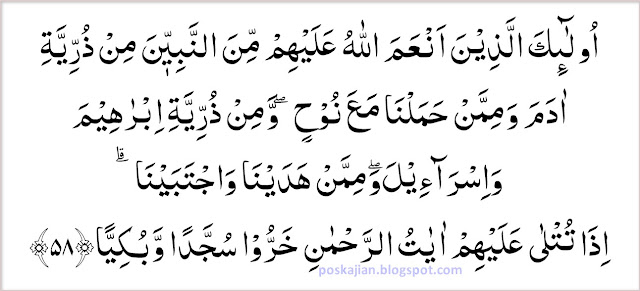 اُولٰۤىِٕكَ الَّذِيْنَ اَنْعَمَ اللّٰهُ عَلَيْهِمْ مِّنَ النَّبِيّٖنَ مِنْ ذُرِّيَّةِ
اٰدَمَ وَمِمَّنْ حَمَلْنَا مَعَ نُوْحٍ ۖوَّمِنْ ذُرِّيَّةِ اِبْرٰهِيْمَ
وَاِسْرَاۤءِيْلَ ۖوَمِمَّنْ هَدَيْنَا وَاجْتَبَيْنَا ۗ
اِذَا تُتْلٰى عَلَيْهِمْ اٰيٰتُ الرَّحْمٰنِ خَرُّوْا سُجَّدًا وَّبُكِيًّا ﴿٥٨﴾
poskajian.blogspot.com